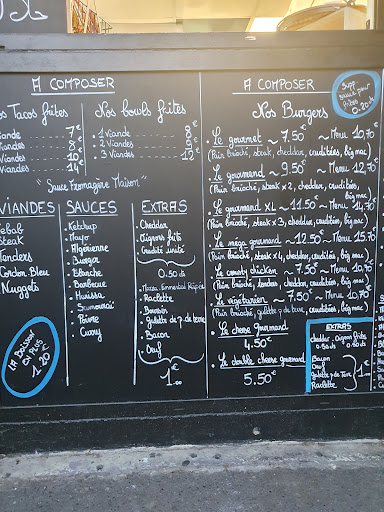 A COMPOSER
os Tacos frites
iande 7 €
iandes 8 €
iandes 10 €
iandes 14 €
Nos bowls frites
1 Viande
2 Viandes
3 Viandes
"Sauce Fromagère Maison"
VIANDES
Kebab
Steak
Tenders
Cordon Bleu
Nuggets
1 Boisson
EN PLUS
1.20 €
SAUCES
Ketchup
Mayo
Algérienne
Burger
Blanche
Barbecue
Harissa
Samouraï
Poivre
Curry
EXTRAS
Cheddar
Oignons frits
Crudité unité
0.50 cts
Mozza. Emmental Râpée
Raclette
Boursin
Galette de p. de terre
Bacon
Oeuf
1.00 €
A COMPOSER
Supp
sauce pour
frites
0.20 cts
Nos Burgers
Le gourmet ~ 7.50 € ~ Menu 10.70 €
(Pain brioché, steak, cheddar, crudités, big mac)
Le gourmand ~ 9.50 € ~ Menu 12.70 €
(Pain brioché, steak x 2, cheddar, crudités, big mac)
Le gourmand XL ~ 11.50 € ~ Menu
(Pain brioché, steak x 3, cheddar, crudités, big mac)
Le mega gourmand ~ 12.50 € ~ Menu 15.70
Le crousty chicken ~ 7.50 € ~ Menu 10.70
Le végétarien ~ 7.50 € ~ Menu 10.70 €
(Pain brioché, galette p de terre, crudités, big mac)
Le cheese gourmand
4.50 €
Le double cheese gourmand
5.50 €
EXTRAS
cheddar oignons frits
0.50 cts 0.50 cts
Bacon
Oeuf
galette p de Terre
Raclette
1 €